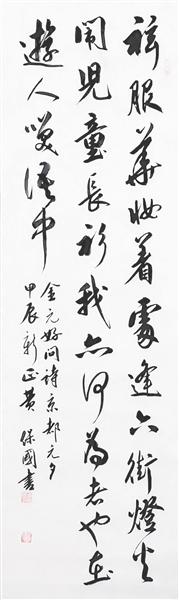 袨服華妝着處逢六街燈火
鬧兒童長衫我亦何為者也在
遊人笑語中
金元好問詩京都元夕
甲辰新正黄保國書